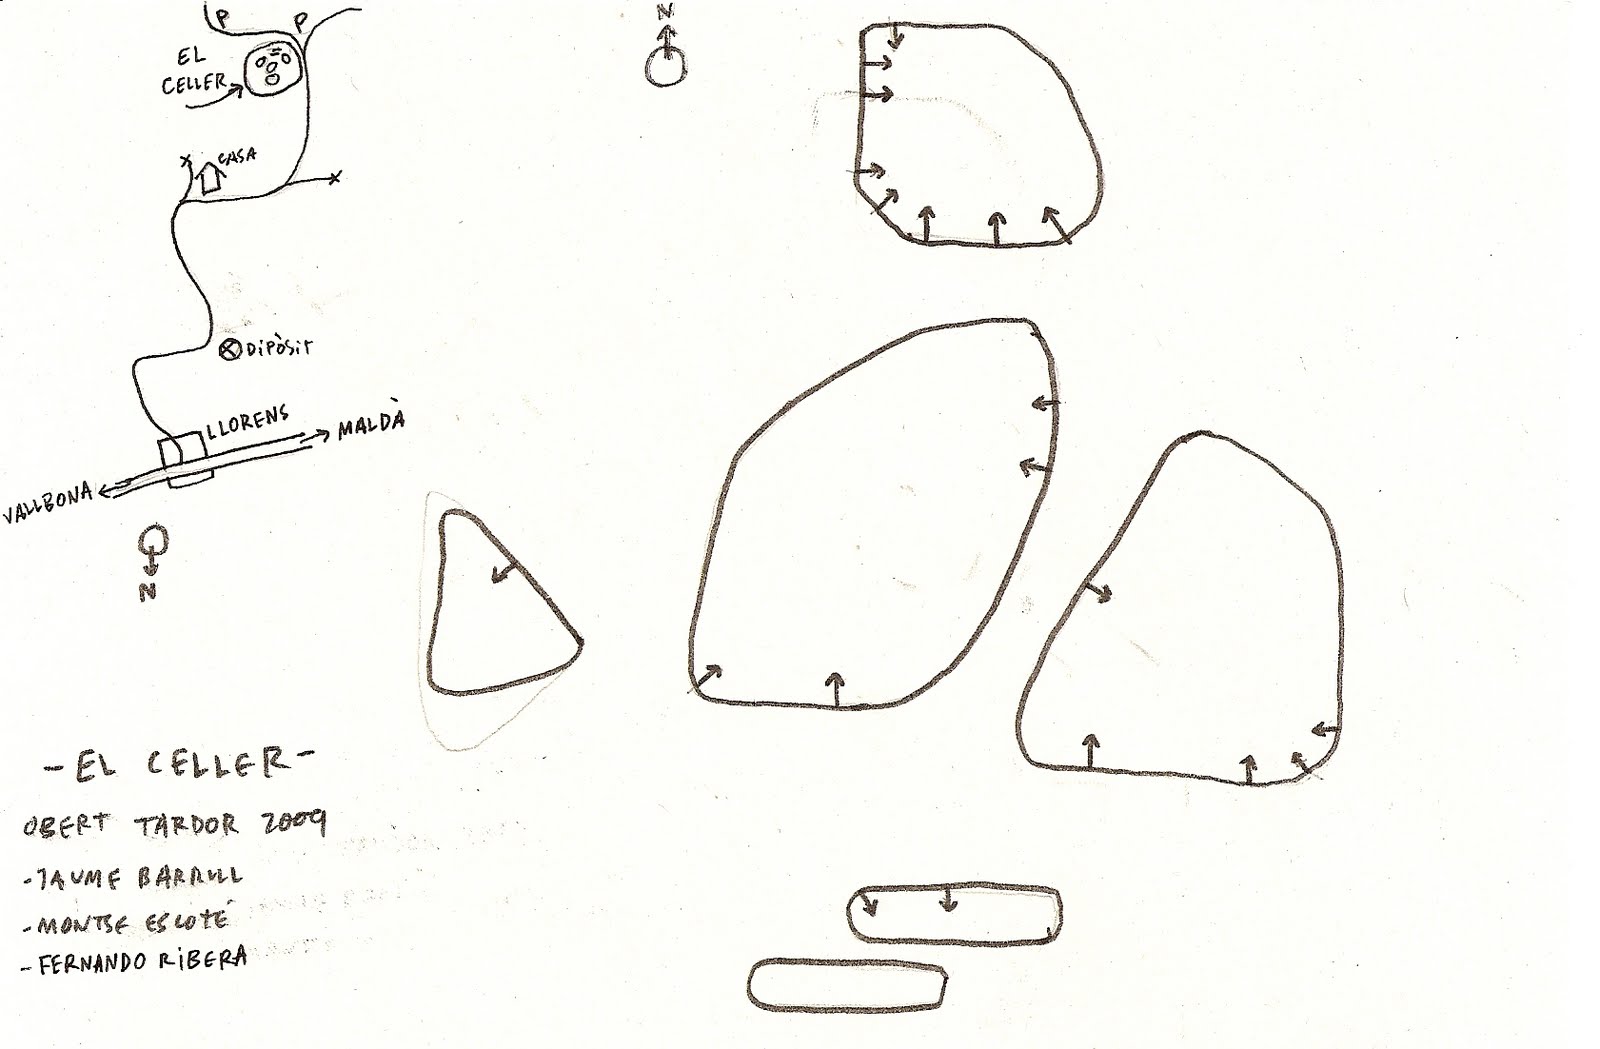 P P
EL
CELLER
CASA
DIPÒSIT
LLORENS
MALDÀ
VALLBONA
N
N
-EL CELLER-
OBERT TARDOR 2009
-JAUME BARRULL
-MONTSE ESCOTÉ
-FERNANDO RIBERA